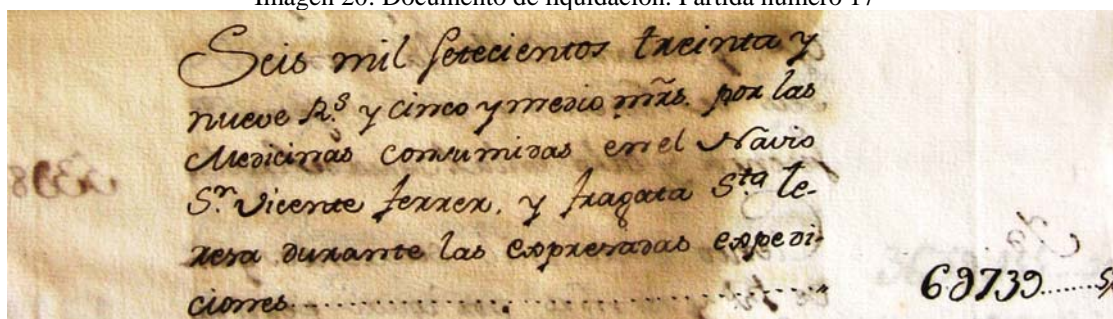 Imagen 20. Documento de liquidación. Partida número 17
Seis mil setecientos treinta y
nueve R.s y cinco y medio mrs. por las
Medicinas consumidas en el Navio
S.n Vicente ferrer, y fragata Sta Te-
resa durante las expresadas expedi-
ciones
6739